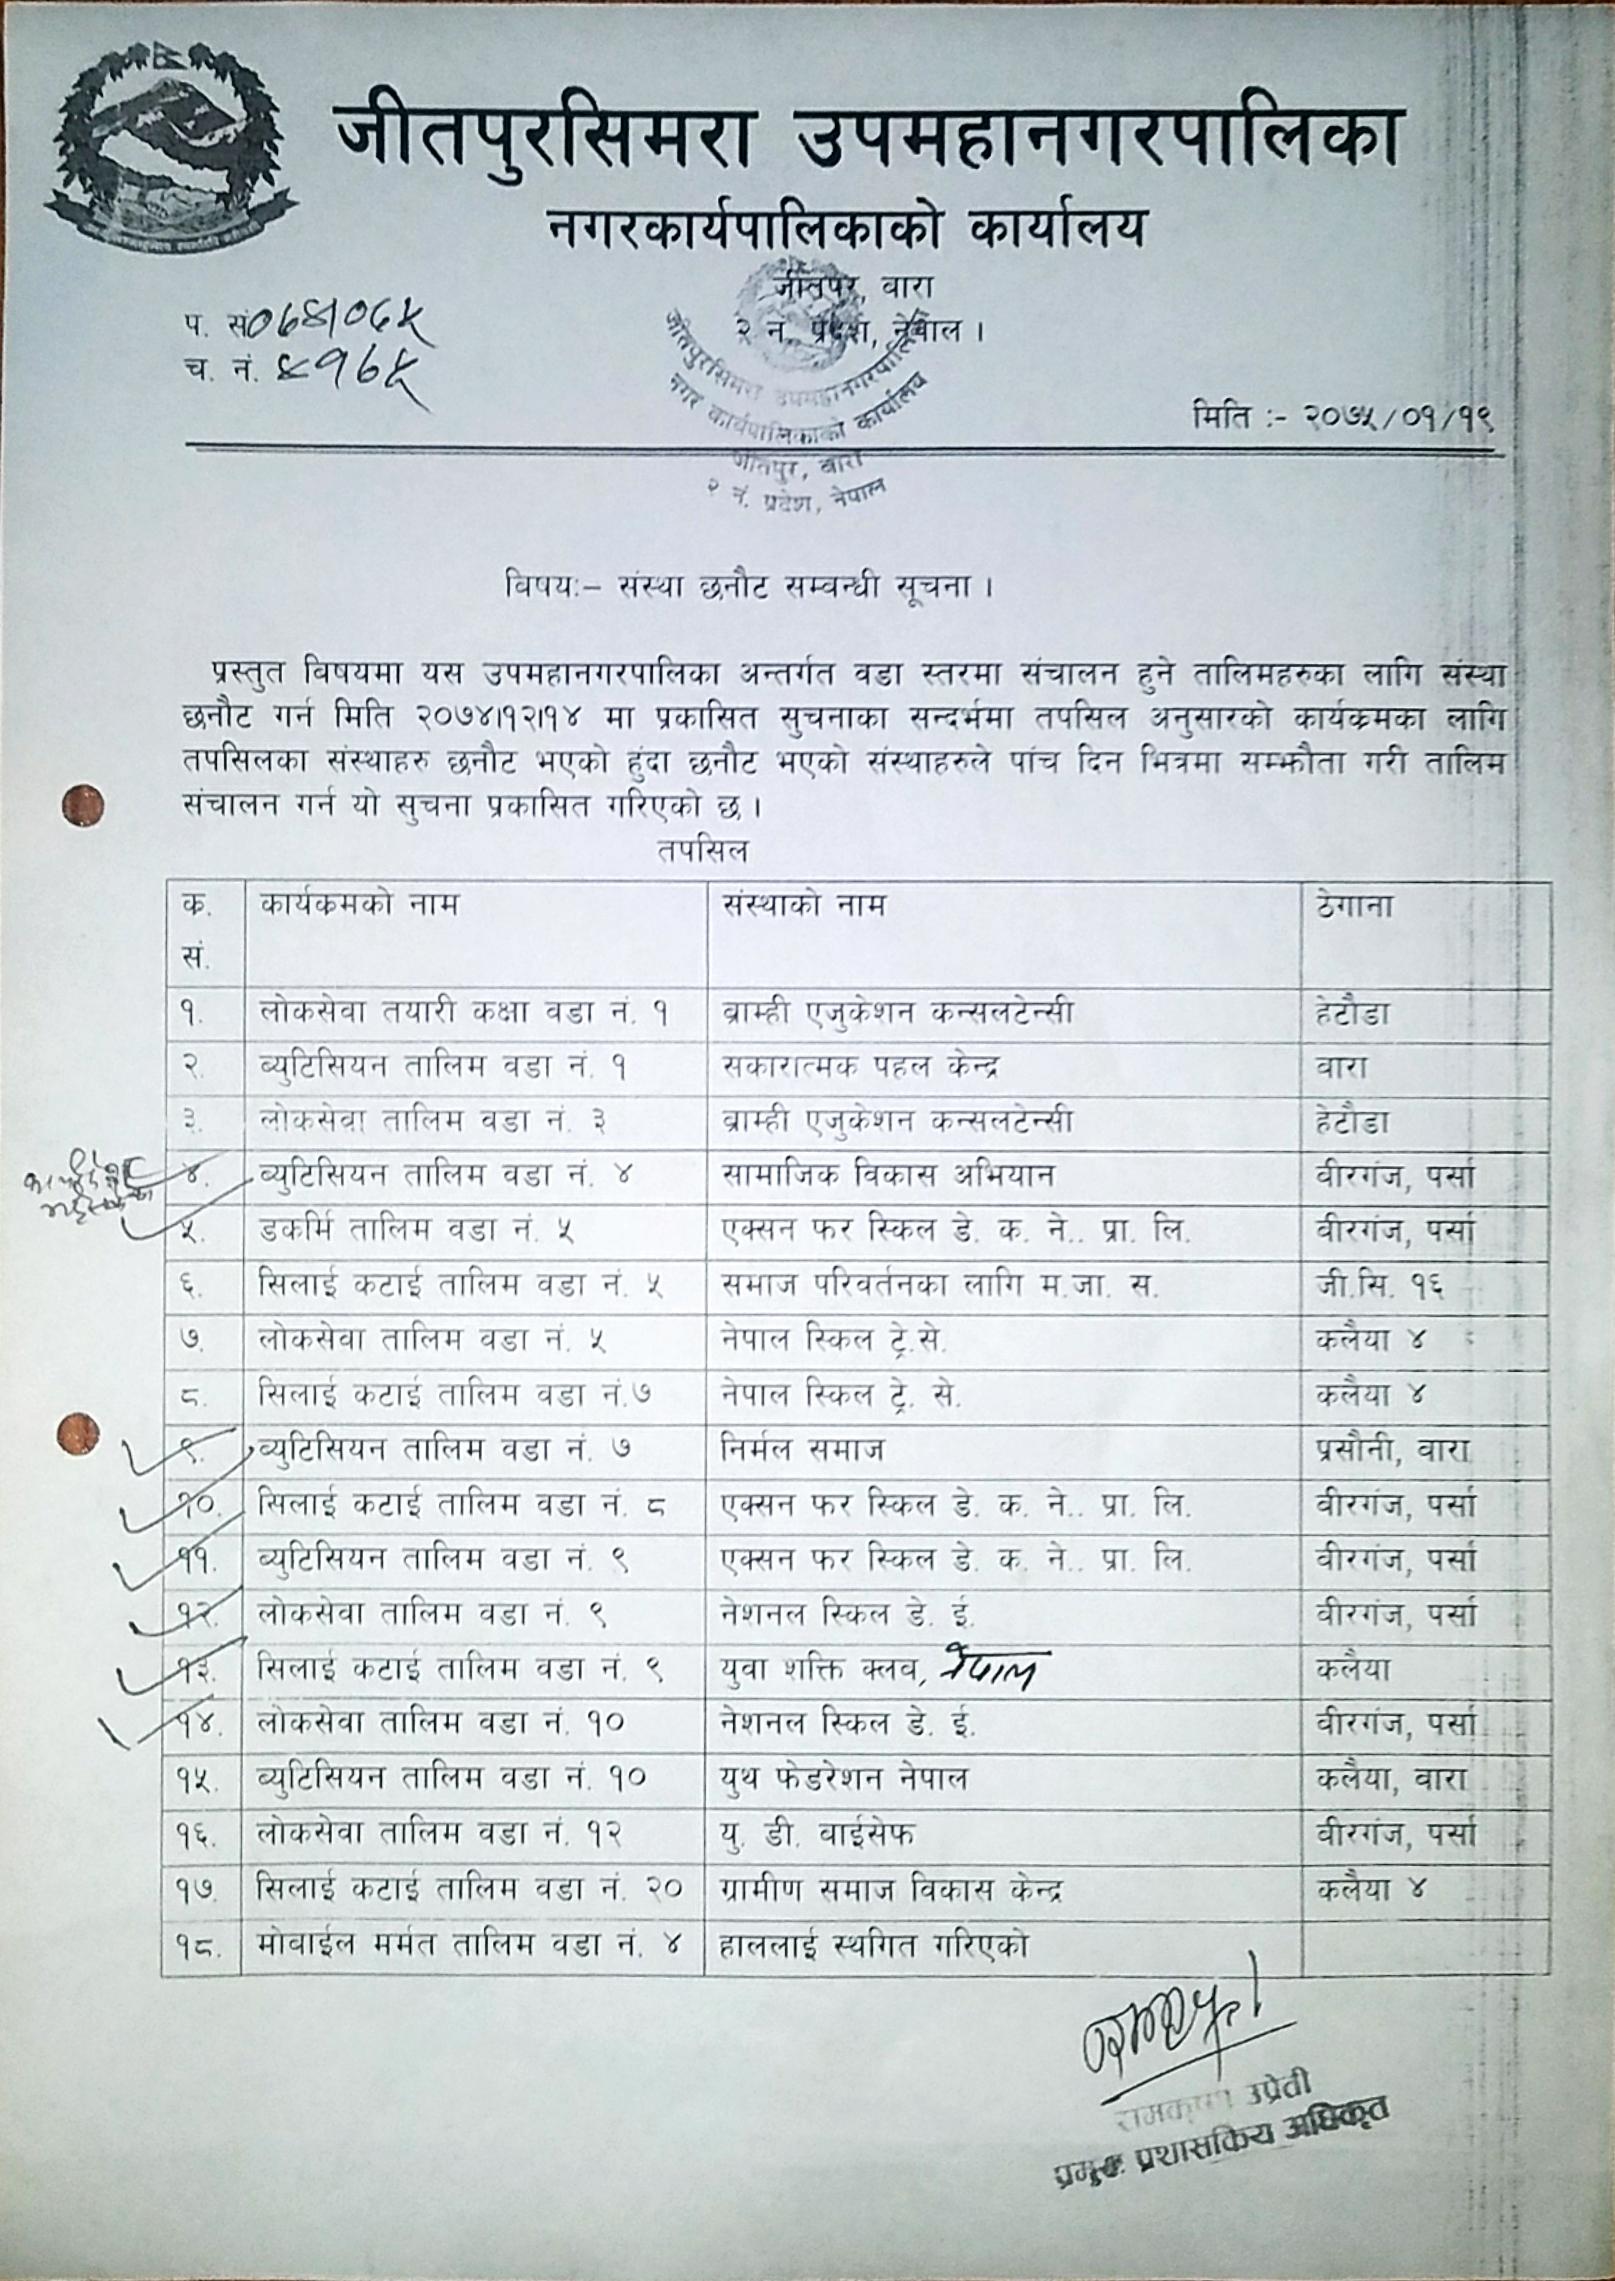 जीतपुरसिमरा उपमहानगरपालिका
नगरकार्यपालिकाको कार्यालय
जीतपुर, वारा
२ नं. प्रदेश, नेपाल ।
प. सं ०७४/०७५
च. नं. ४१७५
जीतपुरसिमरा उपमहानगरपालिका
नगर कार्यपालिकाको कार्यालय
जीतपुर, बारा
२ नं. प्रदेश, नेपाल
मिति :- २०७५/०१/१९
विषय:– संस्था छनौट सम्वन्धी सूचना ।
प्रस्तुत विषयमा यस उपमहानगरपालिका अन्तर्गत वडा स्तरमा संचालन हुने तालिमहरुका लागि संस्था
छनौट गर्न मिति २०७४।१२।१४ मा प्रकासित सुचनाका सन्दर्भमा तपसिल अनुसारको कार्यक्रमका लागि
तपसिलका संस्थाहरु छनौट भएको हुंदा छनौट भएको संस्थाहरुले पांच दिन भित्रमा सम्झौता गरी तालिम
संचालन गर्न यो सुचना प्रकासित गरिएको छ ।
तपसिल
क. सं. कार्यक्रमको नाम संस्थाको नाम ठेगाना
१. लोकसेवा तयारी कक्षा वडा नं. १ ब्राम्ही एजुकेशन कन्सलटेन्सी हेटौडा
२. व्युटिसियन तालिम वडा नं. १ सकारात्मक पहल केन्द्र वारा
३. लोकसेवा तालिम वडा नं. ३ ब्राम्ही एजुकेशन कन्सलटेन्सी हेटौडा
४. व्युटिसियन तालिम वडा नं. ४ सामाजिक विकास अभियान वीरगंज, पर्सा
५. डकर्मि तालिम वडा नं. ५ एक्सन फर स्किल डे. क. ने.. प्रा. लि. वीरगंज, पर्सा
६. सिलाई कटाई तालिम वडा नं. ५ समाज परिवर्तनका लागि म.जा. स. जी.सि. १६
७. लोकसेवा तालिम वडा नं. ५ नेपाल स्किल ट्रे.से. कलैया ४
८. सिलाई कटाई तालिम वडा नं.७ नेपाल स्किल ट्रे. से. कलैया ४
९. व्युटिसियन तालिम वडा नं. ७ निर्मल समाज प्रसौनी, वारा
१०. सिलाई कटाई तालिम वडा नं. ८ एक्सन फर स्किल डे. क. ने.. प्रा. लि. वीरगंज, पर्सा
११. व्युटिसियन तालिम वडा नं. ९ एक्सन फर स्किल डे. क. ने.. प्रा. लि. वीरगंज, पर्सा
१२. लोकसेवा तालिम वडा नं. ९ नेशनल स्किल डे. ई. वीरगंज, पर्सा
१३. सिलाई कटाई तालिम वडा नं. ९ युवा शक्ति क्लव, नेपाल कलैया
१४. लोकसेवा तालिम वडा नं. १० नेशनल स्किल डे. ई. वीरगंज, पर्सा
१५. व्युटिसियन तालिम वडा नं. १० युथ फेडरेशन नेपाल कलैया, वारा
१६. लोकसेवा तालिम वडा नं. १२ यु. डी. वाईसेफ वीरगंज, पर्सा
१७. सिलाई कटाई तालिम वडा नं. २० ग्रामीण समाज विकास केन्द्र कलैया ४
१८. मोवाईल मर्मत तालिम वडा नं. ४ हाललाई स्थगित गरिएको
रामकृष्ण उप्रेती
प्रमुख प्रशासकिय अधिकृत